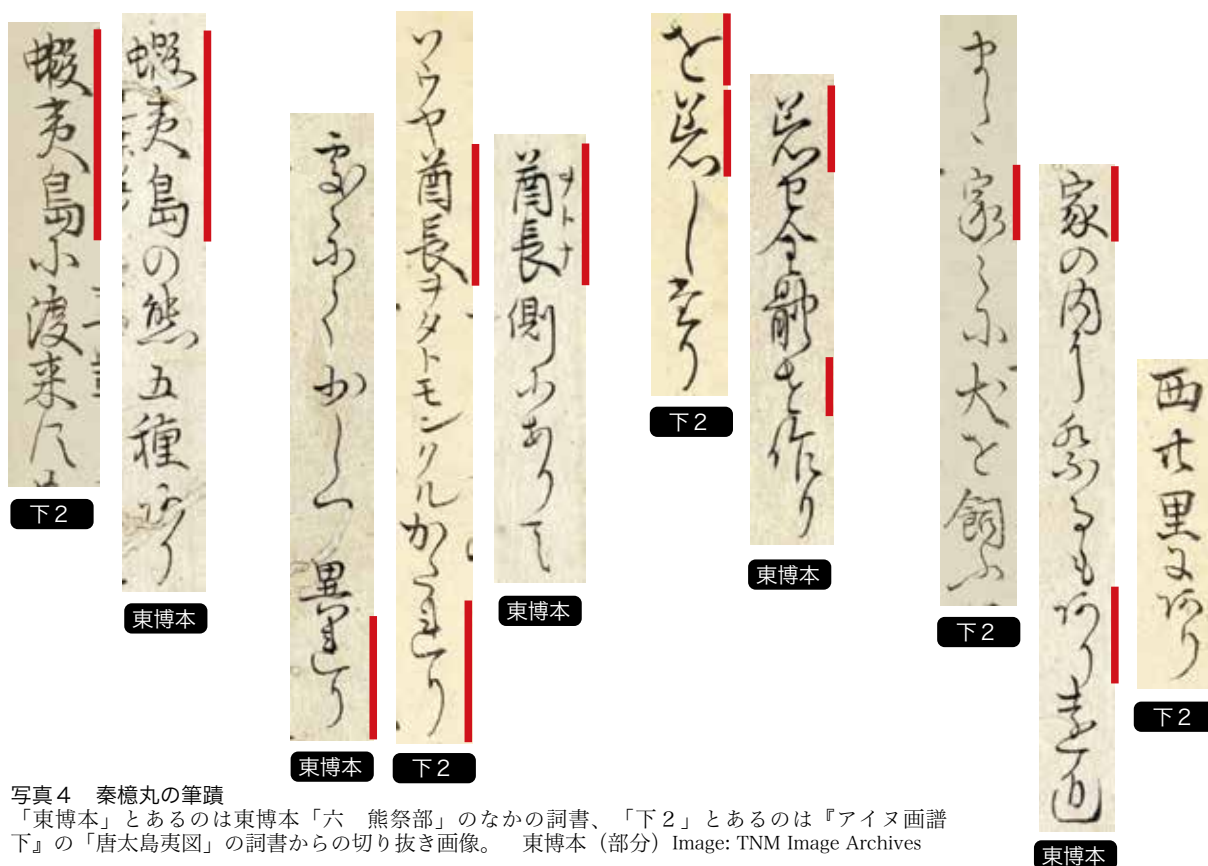 蝦夷島に渡来
下2
蝦夷島の熊五種あり
東博本
異れり
東博本
ソウヤ酋長ヲタトモンクル
下2
ヲトナ
酋長側にありて
東博本
を
下2
全體を作り
東博本
家々に犬を飼ふ
下2
家の内に るもあり
東博本
里にあり
下2
写真4 秦檍丸の筆蹟
「東博本」とあるのは東博本「六 熊祭部」のなかの詞書、「下2」とあるのは『アイヌ画譜
下』の「唐太島夷図」の詞書からの切り抜き画像。 東博本（部分）Image: TNM Image Archives